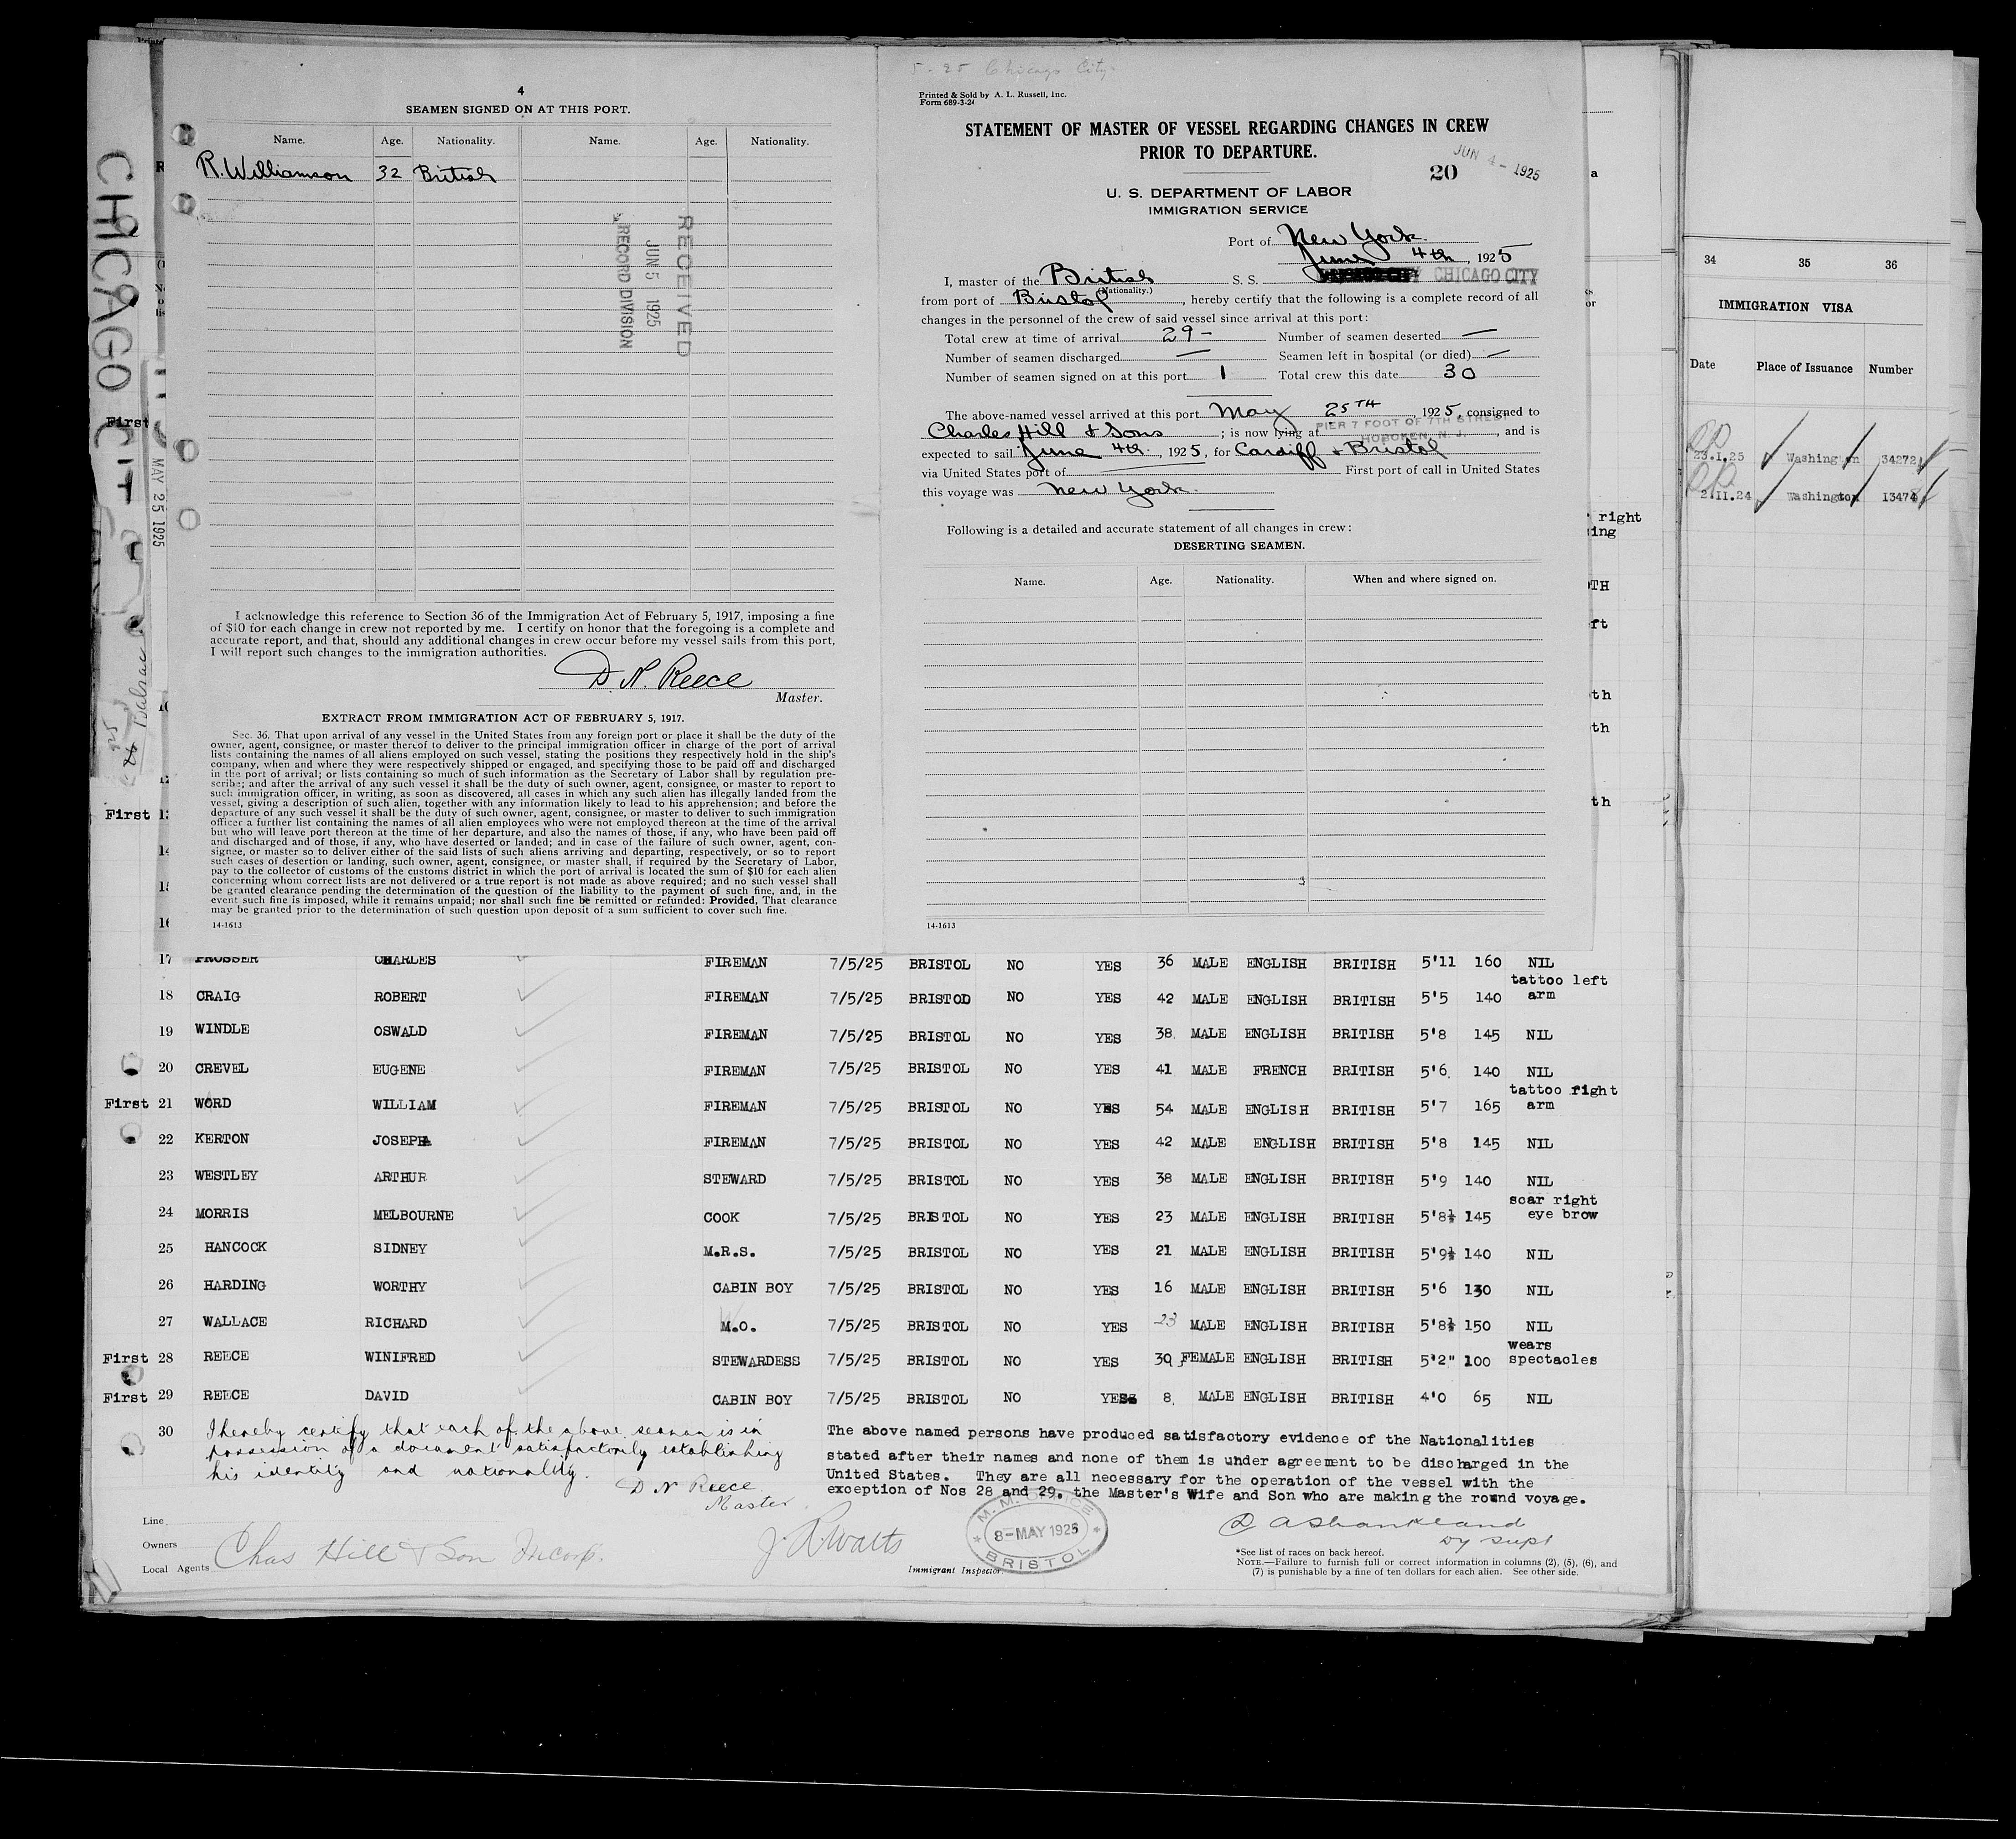 4
SEAMEN SIGNED ON AT THIS PORT.
Name. Age. Nationality. Name. Age. Nationality.
R. Williamson 32 British
RECEIVED
JUN 5 1925
RECORD DIVISION
I acknowledge this reference to Section 36 of the Immigration Act of February 5, 1917, imposing a fine
of $10 for each change in crew not reported by me. I certify on honor that the foregoing is a complete and
accurate report, and that, should any additional changes in crew occur before my vessel sails from this port,
I will report such changes to the immigration authorities.
D. N. Reece
Master.
EXTRACT FROM IMMIGRATION ACT OF FEBRUARY 5, 1917.
Sec. 36. That upon arrival of any vessel in the United States from any foreign port or place it shall be the duty of the
owner, agent, consignee, or master thereof to deliver to the principal immigration officer in charge of the port of arrival
lists containing the names of all aliens employed on such vessel, stating the positions they respectively hold in the ship's
company, when and where they were respectively shipped or engaged, and specifying those to be paid off and discharged
in the port of arrival; or lists containing so much of such information as the Secretary of Labor shall by regulation pre-
scribe; and after the arrival of any such vessel it shall be the duty of such owner, agent, consignee, or master to report to
such immigration officer, in writing, as soon as discovered, all cases in which any such alien has illegally landed from the
vessel, giving a description of such alien, together with any information likely to lead to his apprehension; and before the
departure of any such vessel it shall be the duty of such owner, agent, consignee, or master to deliver to such immigration
officer a further list containing the names of all alien employees who were not employed thereon at the time of the arrival
but who will leave port thereon at the time of her departure, and also the names of those, if any, who have been paid off
and discharged and of those, if any, who have deserted or landed; and in case of the failure of such owner, agent, con-
signee, or master so to deliver either of the said lists of such aliens arriving and departing, respectively, or so to report
such cases of desertion or landing, such owner, agent, consignee, or master shall, if required by the Secretary of Labor,
pay to the collector of customs of the customs district in which the port of arrival is located the sum of $10 for each alien
concerning whom correct lists are not delivered or a true report is not made as above required; and no such vessel shall
be granted clearance pending the determination of the question of the liability to the payment of such fine, and, in the
event such fine is imposed, while it remains unpaid; nor shall such fine be remitted or refunded: Provided, That clearance
may be granted prior to the determination of such question upon deposit of a sum sufficient to cover such fine.
14-1613
5-25 Chicago City
Printed & Sold by A. L. Russell, Inc.
Form 689-3-24
STATEMENT OF MASTER OF VESSEL REGARDING CHANGES IN CREW
PRIOR TO DEPARTURE.
20 JUN 4- 1925
U. S. DEPARTMENT OF LABOR
IMMIGRATION SERVICE
Port of New York
June 4th, 1925
I, master of the British S. S. CHICAGO CITY
(Nationality.)
from port of Bristol, hereby certify that the following is a complete record of all
changes in the personnel of the crew of said vessel since arrival at this port:
Total crew at time of arrival 29- Number of seamen deserted —
Number of seamen discharged — Seamen left in hospital (or died) —
Number of seamen signed on at this port 1 Total crew this date 30
The above-named vessel arrived at this port May 25TH, 1925, consigned to
Charles Hill & Sons; is now lying at PIER 7 FOOT OF 7TH STREET HOBOKEN, N. J., and is
expected to sail June 4th, 1925, for Cardiff & Bristol
via United States port of — First port of call in United States
this voyage was New York
Following is a detailed and accurate statement of all changes in crew:
DESERTING SEAMEN.
Name. Age. Nationality. When and where signed on.
14-1613
CHICAGO CIT
MAY 25 1925
34 35 36
IMMIGRATION VISA
Date Place of Issuance Number
23.I.25 Washington 34272
2.II.24 Washington I3474
First
First
right
17 PROSSER CHARLES FIREMAN 7/5/25 BRISTOL NO YES 36 MALE ENGLISH BRITISH 5'11 160 NIL
18 CRAIG ROBERT FIREMAN 7/5/25 BRISTOD NO YES 42 MALE ENGLISH BRITISH 5'5 140 tattoo left arm
19 WINDLE OSWALD FIREMAN 7/5/25 BRISTOL NO YES 38 MALE ENGLISH BRITISH 5'8 145 NIL
20 CREVEL EUGENE FIREMAN 7/5/25 BRISTOL NO YES 41 MALE FRENCH BRITISH 5'6 140 NIL
First 21 WORD WILLIAM FIREMAN 7/5/25 BRISTOL NO YES 54 MALE ENGLISH BRITISH 5'7 165 tattoo right arm
22 KERTON JOSEPH FIREMAN 7/5/25 BRISTOL NO YES 42 MALE ENGLISH BRITISH 5'8 145 NIL
23 WESTLEY ARTHUR STEWARD 7/5/25 BRISTOL NO YES 38 MALE ENGLISH BRITISH 5'9 140 NIL
24 MORRIS MELBOURNE COOK 7/5/25 BRISTOL NO YES 23 MALE ENGLISH BRITISH 5'8½ 145 scar right eye brow
25 HANCOCK SIDNEY M.R.S. 7/5/25 BRISTOL NO YES 21 MALE ENGLISH BRITISH 5'9½ 140 NIL
26 HARDING WORTHY CABIN BOY 7/5/25 BRISTOL NO YES 16 MALE ENGLISH BRITISH 5'6 130 NIL
27 WALLACE RICHARD M.O. 7/5/25 BRISTOL NO YES 23 MALE ENGLISH BRITISH 5'8½ 150 NIL
First 28 REECE WINIFRED STEWARDESS 7/5/25 BRISTOL NO YES 39 FEMALE ENGLISH BRITISH 5'2" 100 wears spectacles
First 29 REECE DAVID CABIN BOY 7/5/25 BRISTOL NO YES 8 MALE ENGLISH BRITISH 4'0 65 NIL
30 I hereby certify that each of the above seaman is in
possession of a document satisfactorily establishing
his identity and nationality.
D N Reece
Master
The above named persons have produced satisfactory evidence of the Nationalities
stated after their names and none of them is under agreement to be discharged in the
United States. They are all necessary for the operation of the vessel with the
exception of Nos 28 and 29. the Master's Wife and Son who are making the round voyage.
Line
Owners
Local Agents Chas Hill & Son Incorp.
J. R. Watts
Immigrant Inspector.
M. M. OFFICE
8-MAY 1925
BRISTOL
D A Shankland
Dy Supt
*See list of races on back hereof.
NOTE.—Failure to furnish full or correct information in columns (2), (5), (6), and
(7) is punishable by a fine of ten dollars for each alien. See other side.